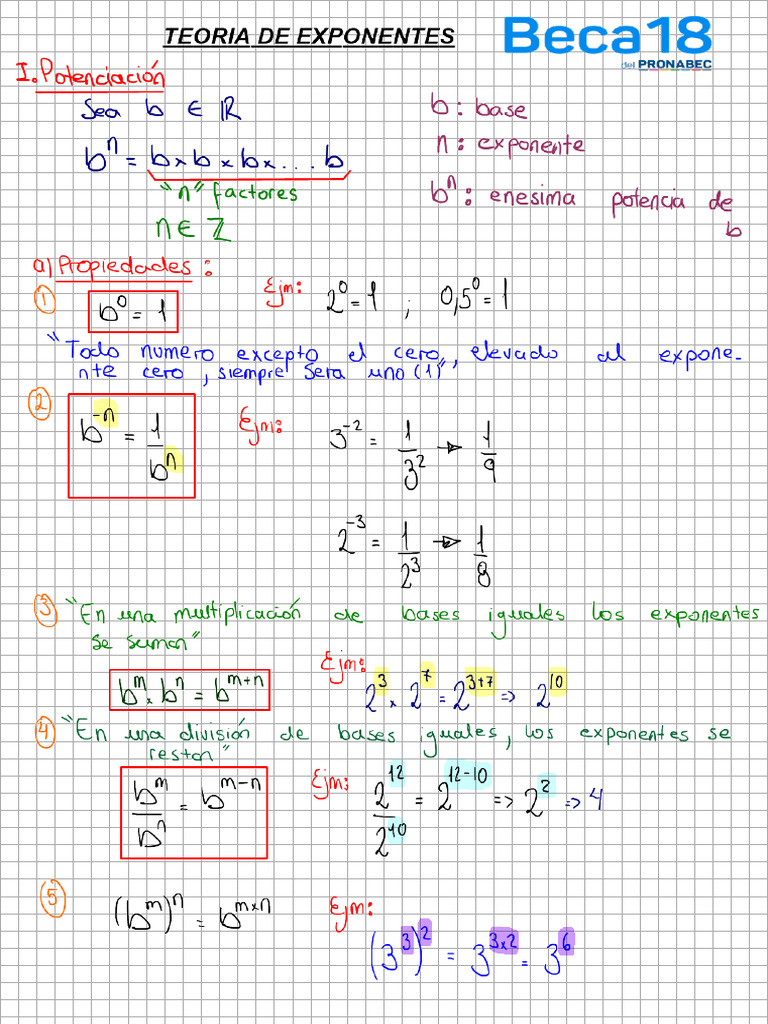 TEORIA DE EXPONENTES
Beca18
del PRONABEC
I. Potenciación
Sea b ∈ ℝ
b: base
n: exponente
bⁿ = b × b × b × ... b
"n" factores
n ∈ ℤ
bⁿ: enesima potencia de
b
a) Propiedades:
① b⁰ = 1
Ejm: 2⁰ = 1 ; 0,5⁰ = 1
"Todo numero excepto el cero, elevado al expone-
nte cero, siempre sera uno (1)"
② b⁻ⁿ = 1/bⁿ
Ejm: 3⁻² = 1/3² → 1/9
2⁻³ = 1/2³ → 1/8
③ "En una multiplicación de bases iguales los exponentes
se suman"
bᵐ × bⁿ = bᵐ⁺ⁿ
Ejm: 2³ × 2⁷ = 2³⁺⁷ => 2¹⁰
④ "En una división de bases iguales, los exponentes se
restan"
bᵐ/bⁿ = bᵐ⁻ⁿ
Ejm: 2¹²/2¹⁰ = 2¹²⁻¹⁰ => 2² => 4
⑤ (bᵐ)ⁿ = bᵐˣⁿ
Ejm:
(3³)² = 3³ˣ² = 3⁶